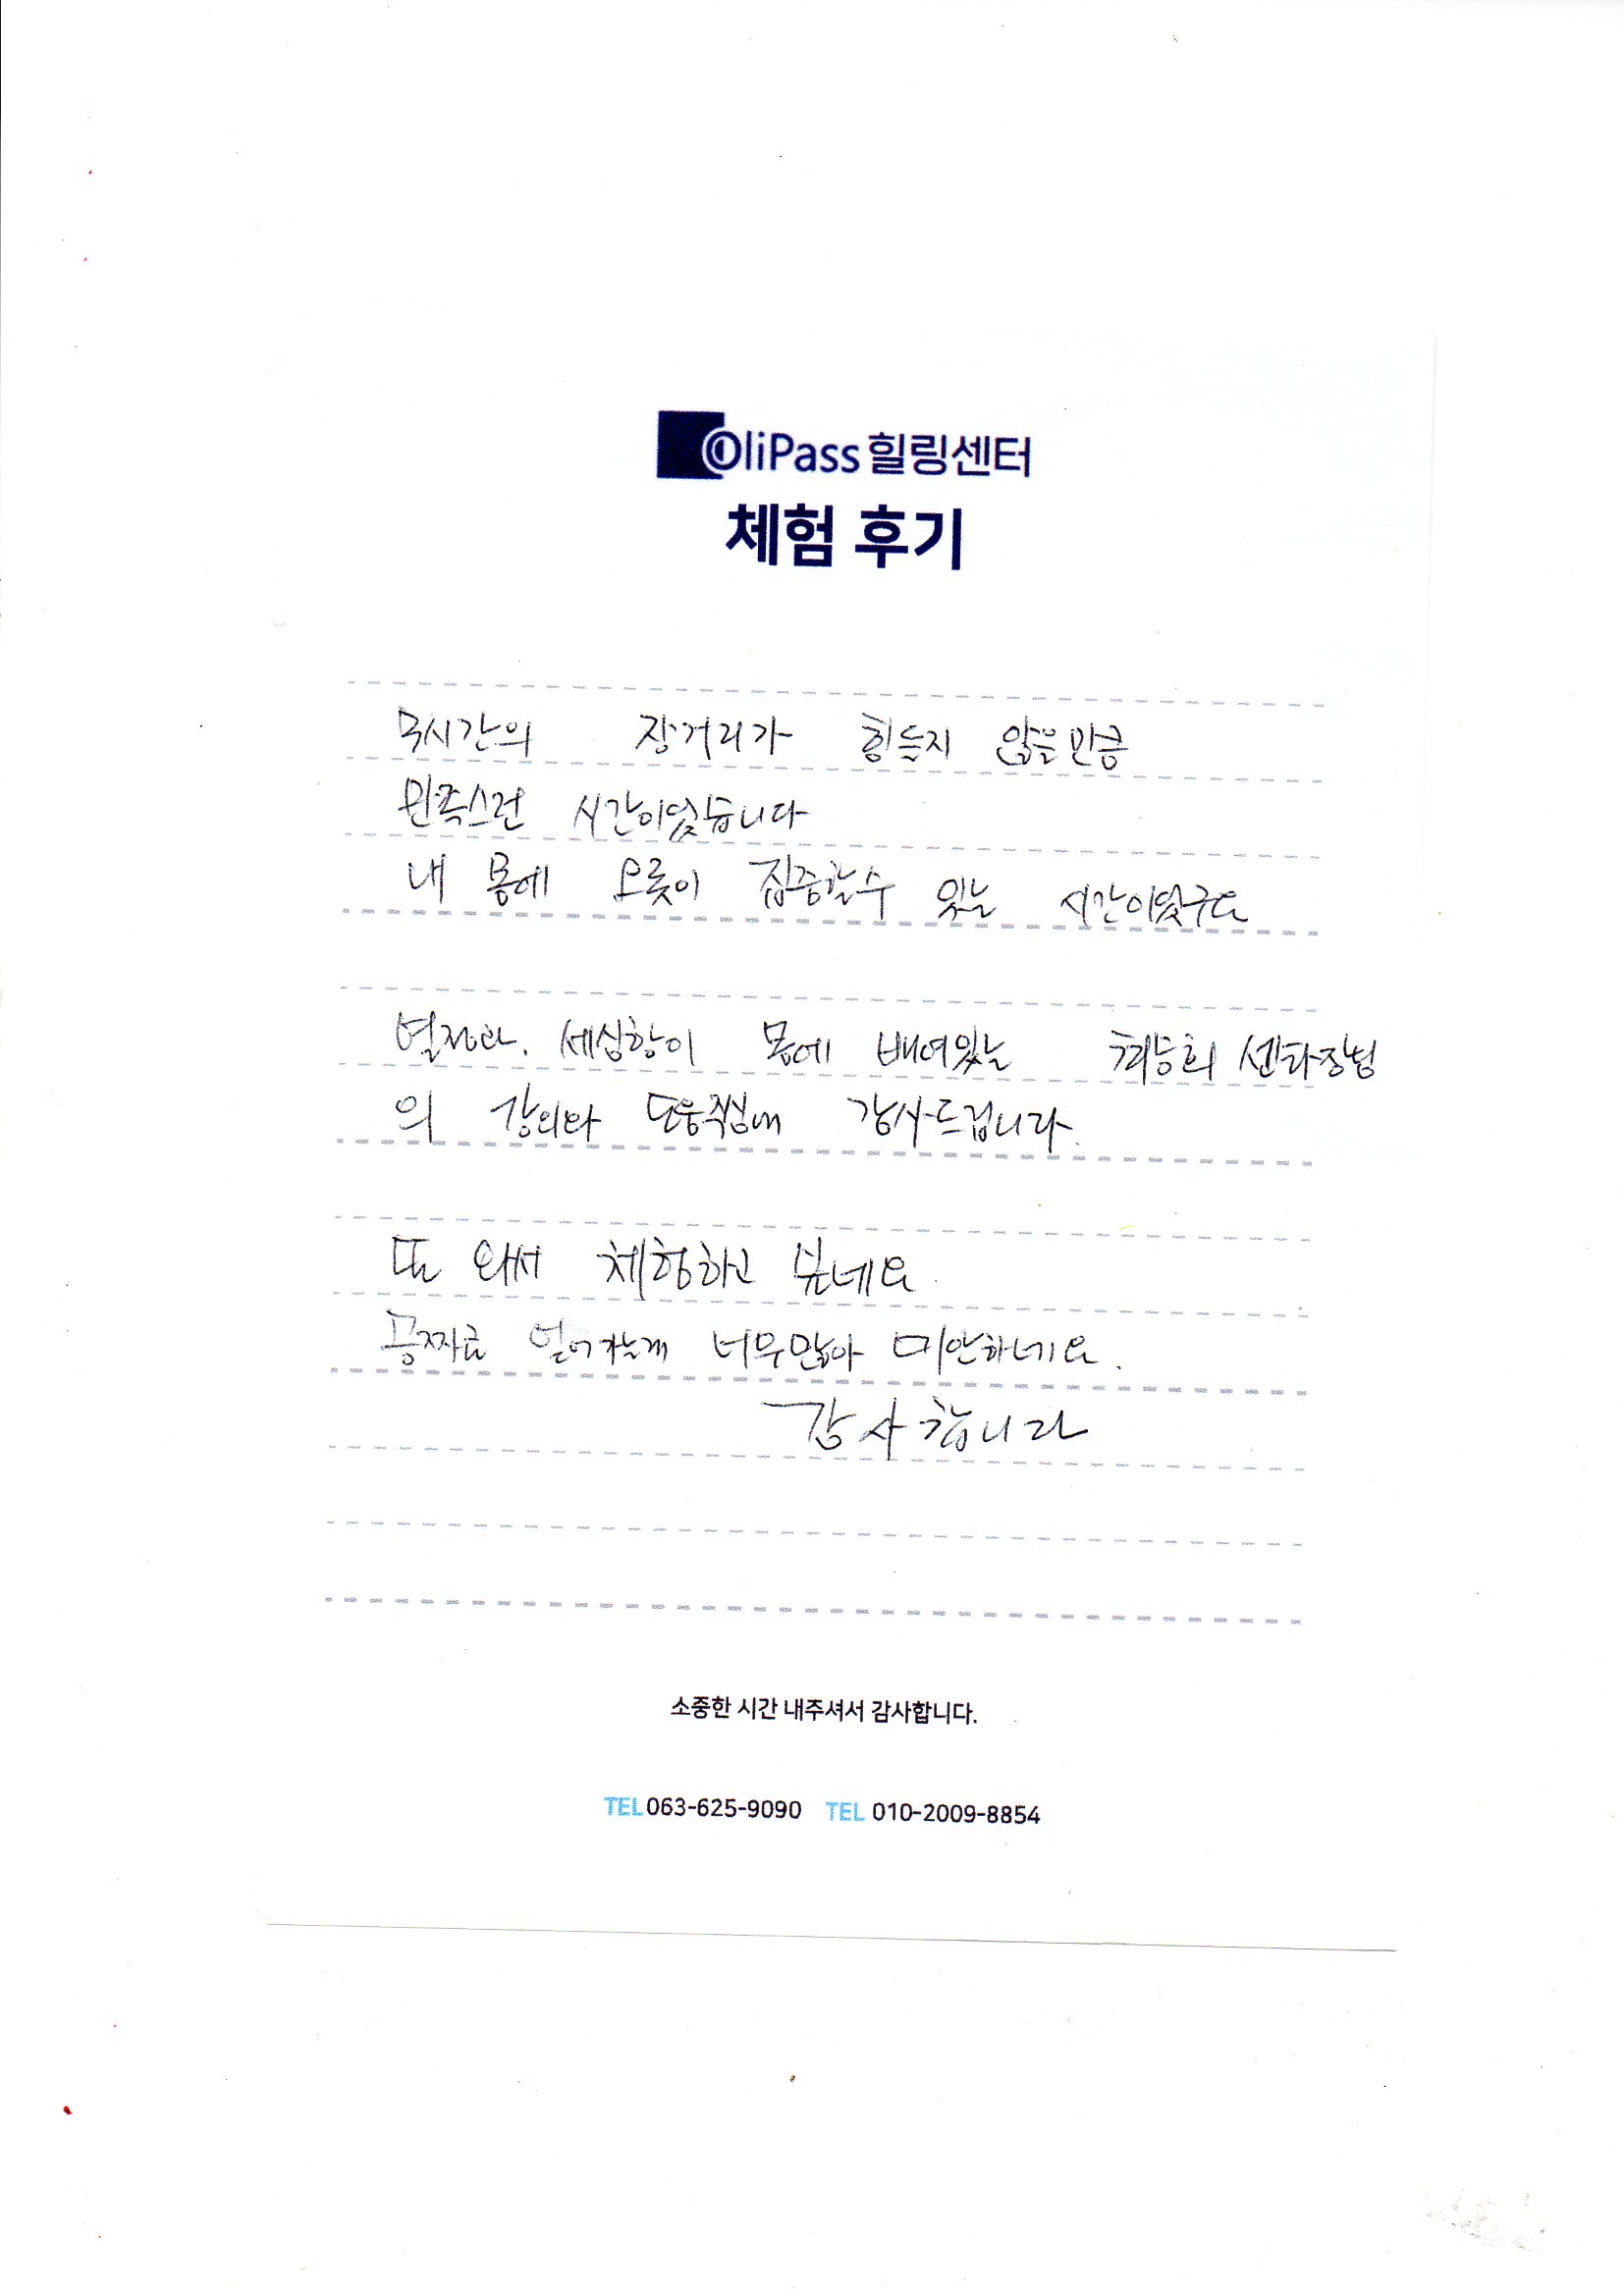 OliPass 힐링센터
체험 후기
장거리가 힘들지 않을만큼
시간이였습니다
내 몸에 오롯이 집중할수 있는 시간이였구요
열정과. 세심함이 몸에 배여있는 센타장님
의 강의와 감사드립니다.
또 와서 체험하고 싶네요.
너무많아 미안하네요.
감사합니다
소중한 시간 내주셔서 감사합니다.
TEL 063-625-9090 TEL 010-2009-8854